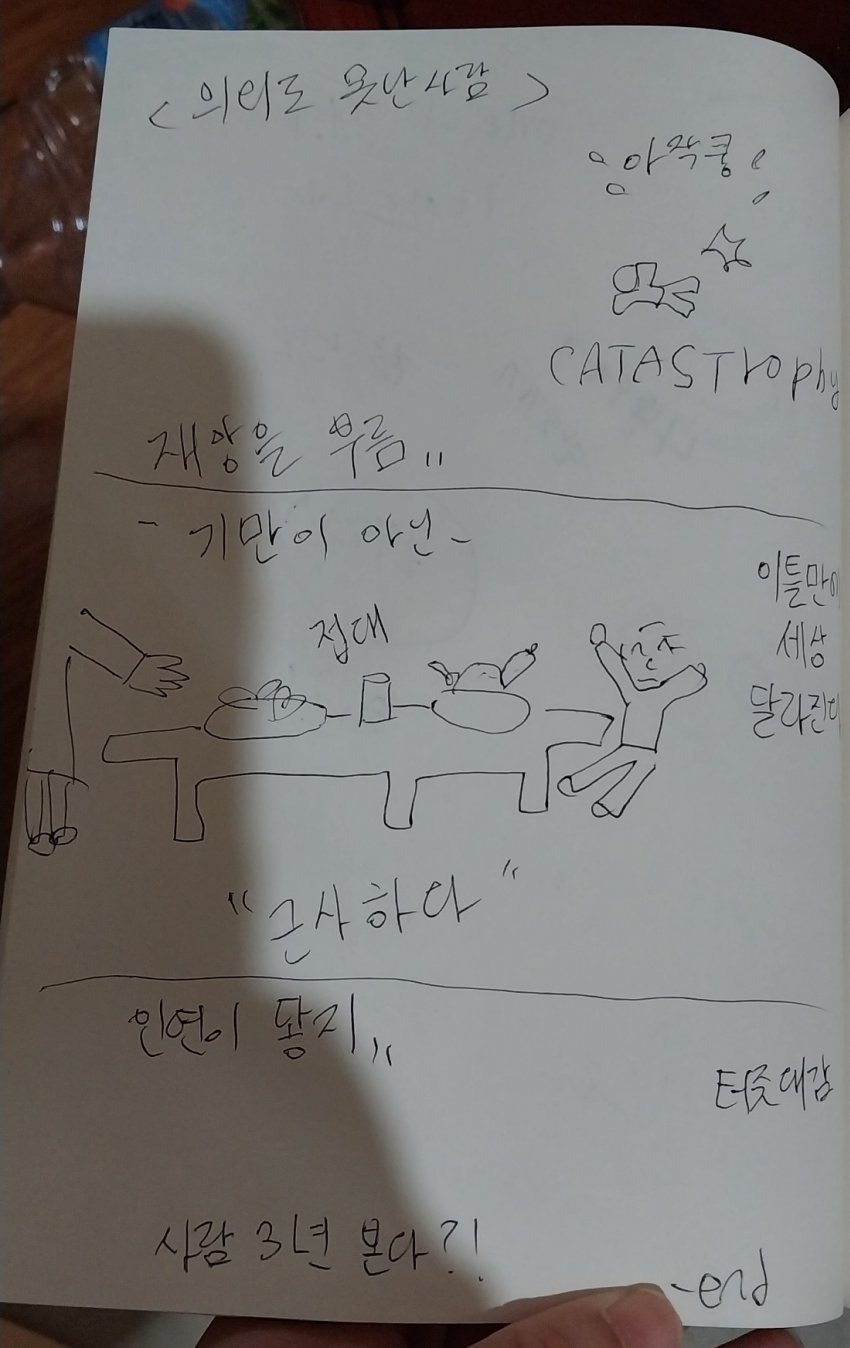 <의리로 못난사람>
아작쿵
CATASTrophy
재앙을 부름,,
- 기만이 아닌 -
이틀만에
세상
달라진다
접대
"근사하다"
인연이 퐝지,,
터줏대감
사람 3년 본다?!
-end